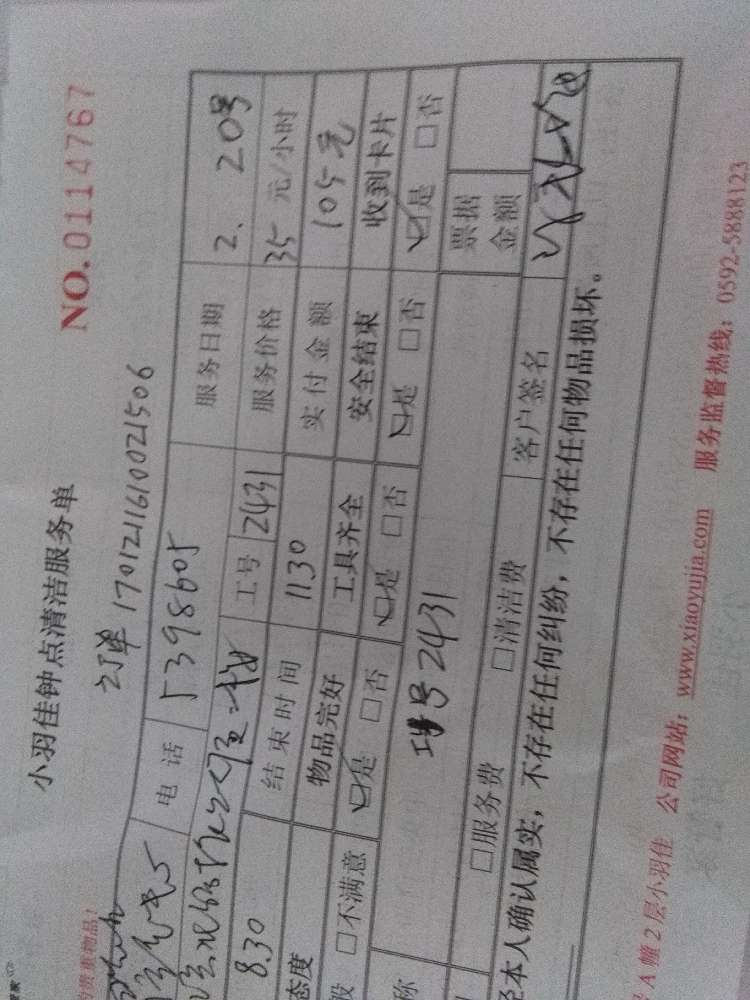 小羽佳钟点清洁服务单
NO.0114767
订单 170121161002l506
的贵重物品！
电 话 5398605 服务日期 2. 20号
工号 2431 服务价格 35 元/小时
8.30 结束时间 11.30 实付金额 105元
态度 物品完好 工具齐全 安全结束 收到卡片
□不满意 ☑是 □否 ☑是 □否 ☑是 □否 ☑是 □否
称 工号2431 票据金额
□服务费 □清洁费 客户签名
经本人确认属实，不存在任何纠纷，不存在任何物品损坏。
A幢2层小羽佳 公司网站：www.xiaoyujia.com 服务监督热线：0592-5888123